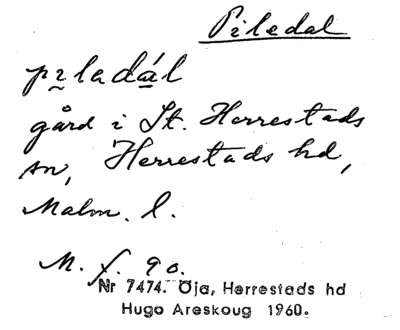 Piledal
pı̱ladá̱l
gård i St. Herrestads
sn, Herrestads hd,
Malm. l.
M. f. 90.
Nr 7474. Öja, Herrestads hd
Hugo Areskoug 1960.